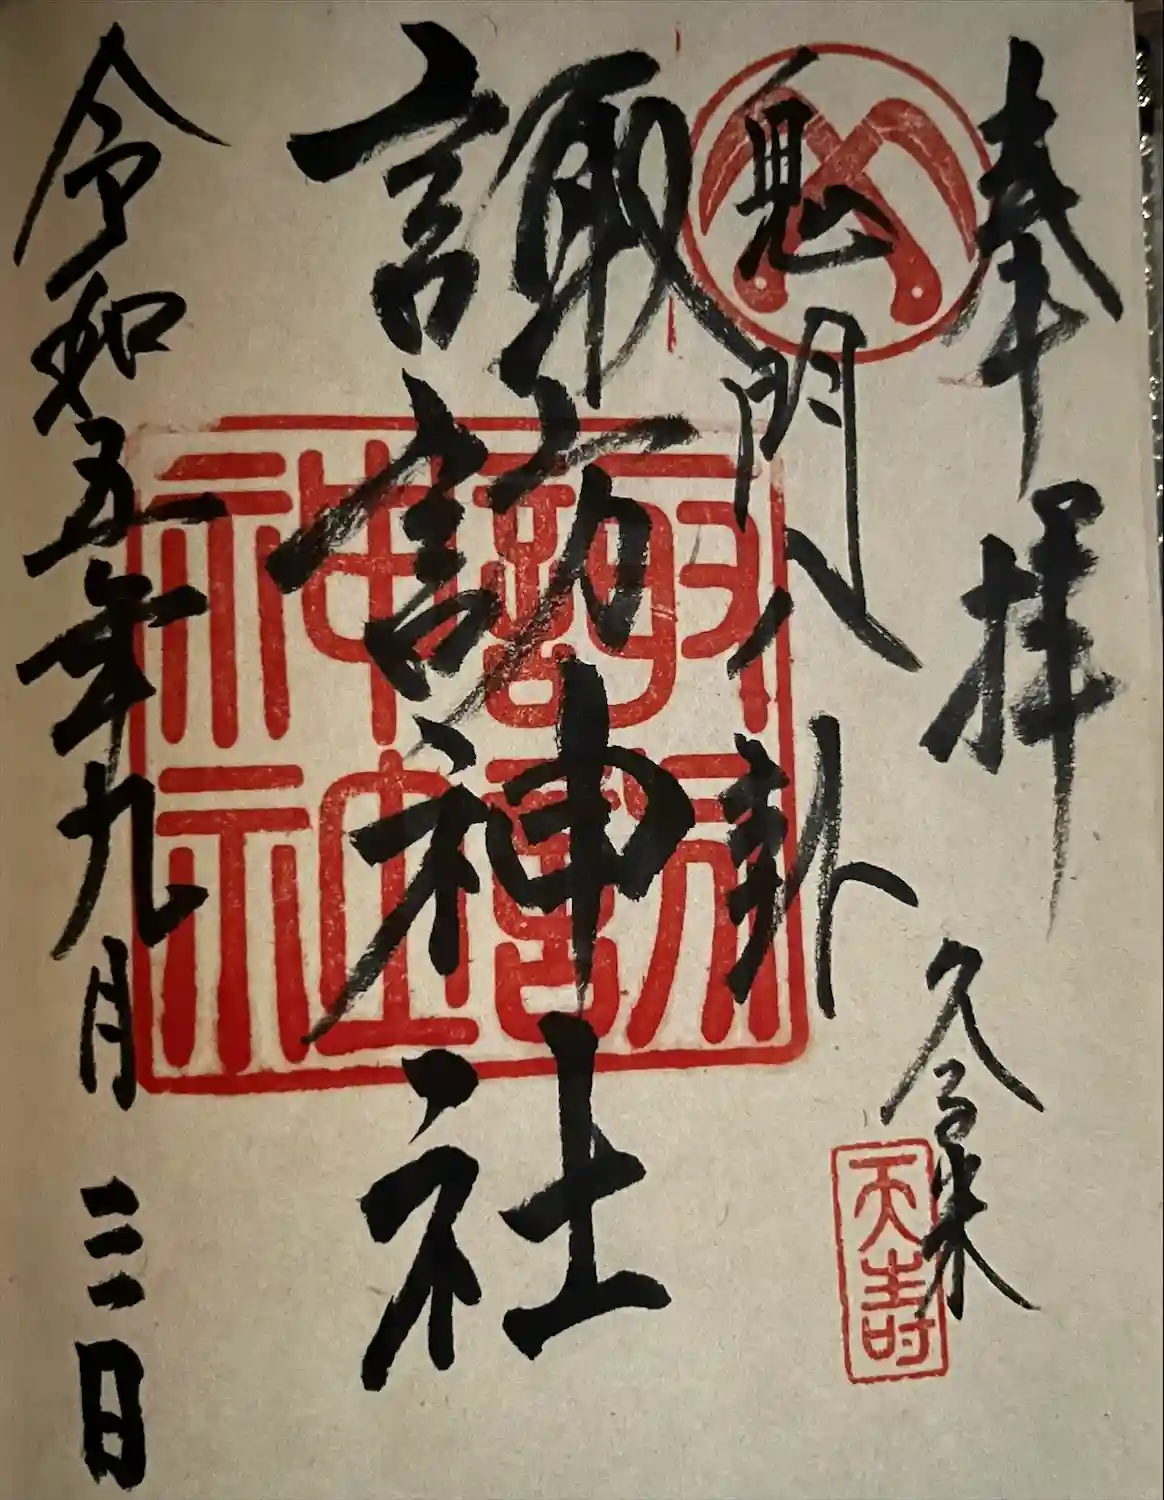 奉拝
久留米
天壽
鬼門八卦
諏訪神社
諏訪
神社
令和五年九月三日